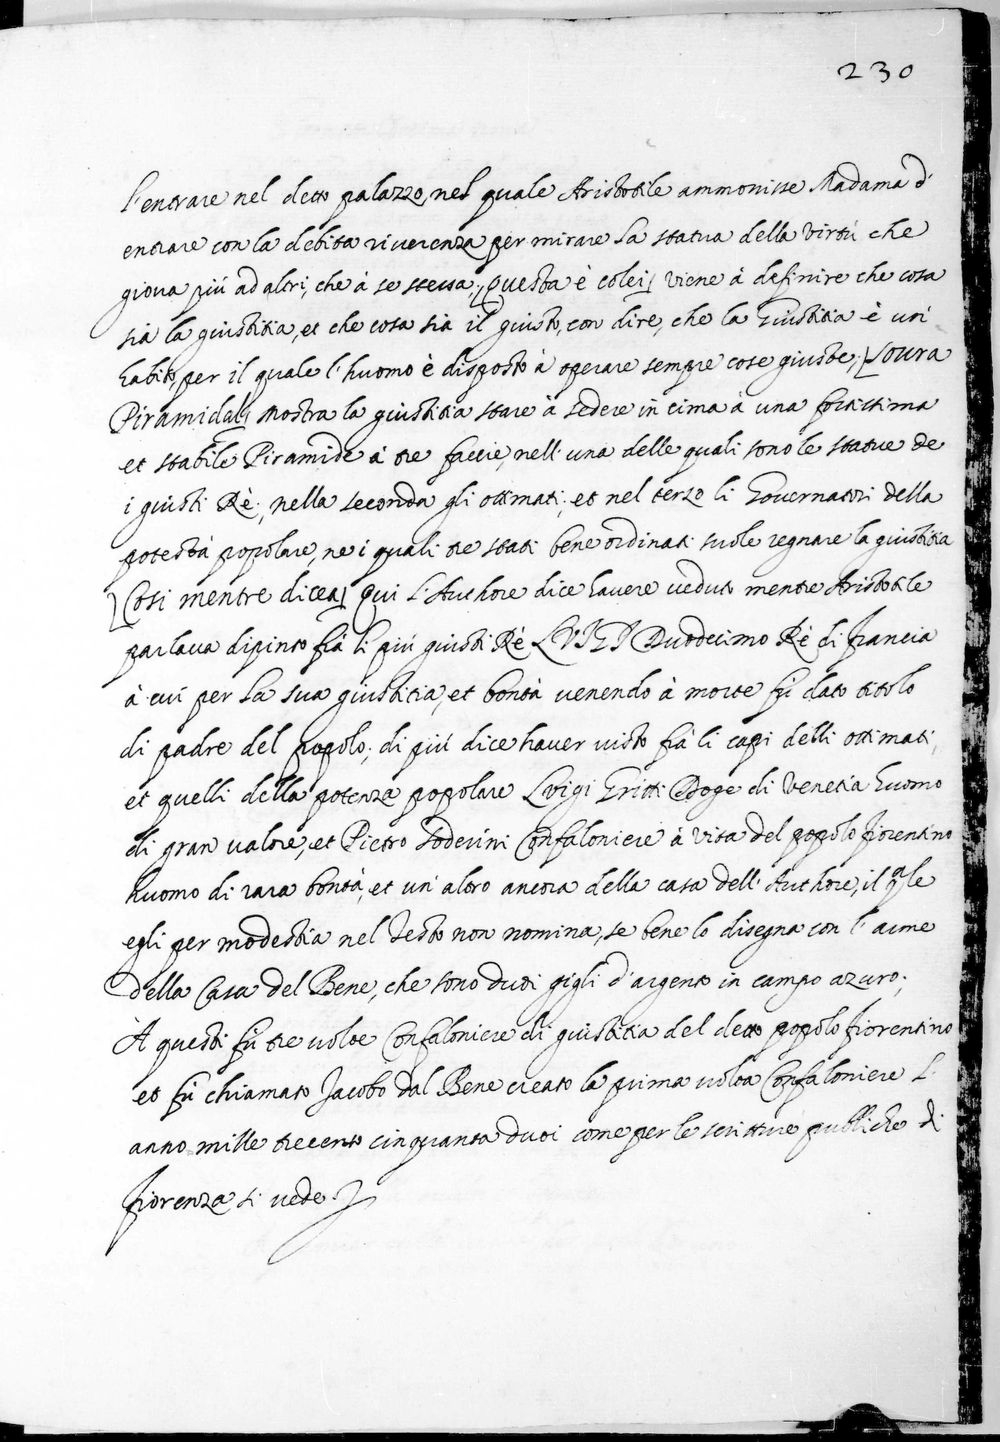 230
l'entrare nel detto palazzo, nel quale Aristotile ammonisse Madama d'
entrare con la debita riverenza per mirare la statua della virtù che
giova più ad altri, che à se stessa; [Questa è colei] viene à definire che cosa
sia la giustitia, et che cosa sia il giusto, con dire, che la Giustitia è un'
habito, per il quale l'huomo è disposto à operare sempre cose giuste; [Soura
Piramidal] mostra la giustitia stare à sedere in cima à una fortissima
et stabile Piramide à tre faccie, nell'una delle quali sono le statue de
i giusti Rè; nella seconda gli ottimati; et nel terzo li Governatori della
potestà popolare, ne i quali tre stati bene ordinati suole regnare la giustitia
[Cosi mentre dicea] Qui l'Authore dice havere veduto mentre Aristotile
parlava dipinto frà li più giusti Rè LVIGI Duodecimo Rè di francia
à cui per la sua giustitia, et bontà venendo à morte fù dato titolo
di padre del popolo; di più dice haver visto frà li capi delli ottimati,
et quelli della potenza popolare Luigi Gritti Doge di Venetia huomo
di gran valore, et Pietro Soderini Confaloniere à vita del popolo fiorentino
huomo di rara bontà, et un'altro ancora della casa dell'Authore, il q.le
egli per modestia nel Testo non nomina, se bene lo disegna con l'arme
della Casa del Bene, che sono duoi gigli d'argento in campo azuro;
A questi fù tre volte Confaloniere di giustitia del detto popolo fiorentino
et fù chiamato Jacobo dal Bene creato la prima volta Confaloniere l'
anno mille trecento cinquanta duoi come per le scritture publiche di
fiorenza si vede.